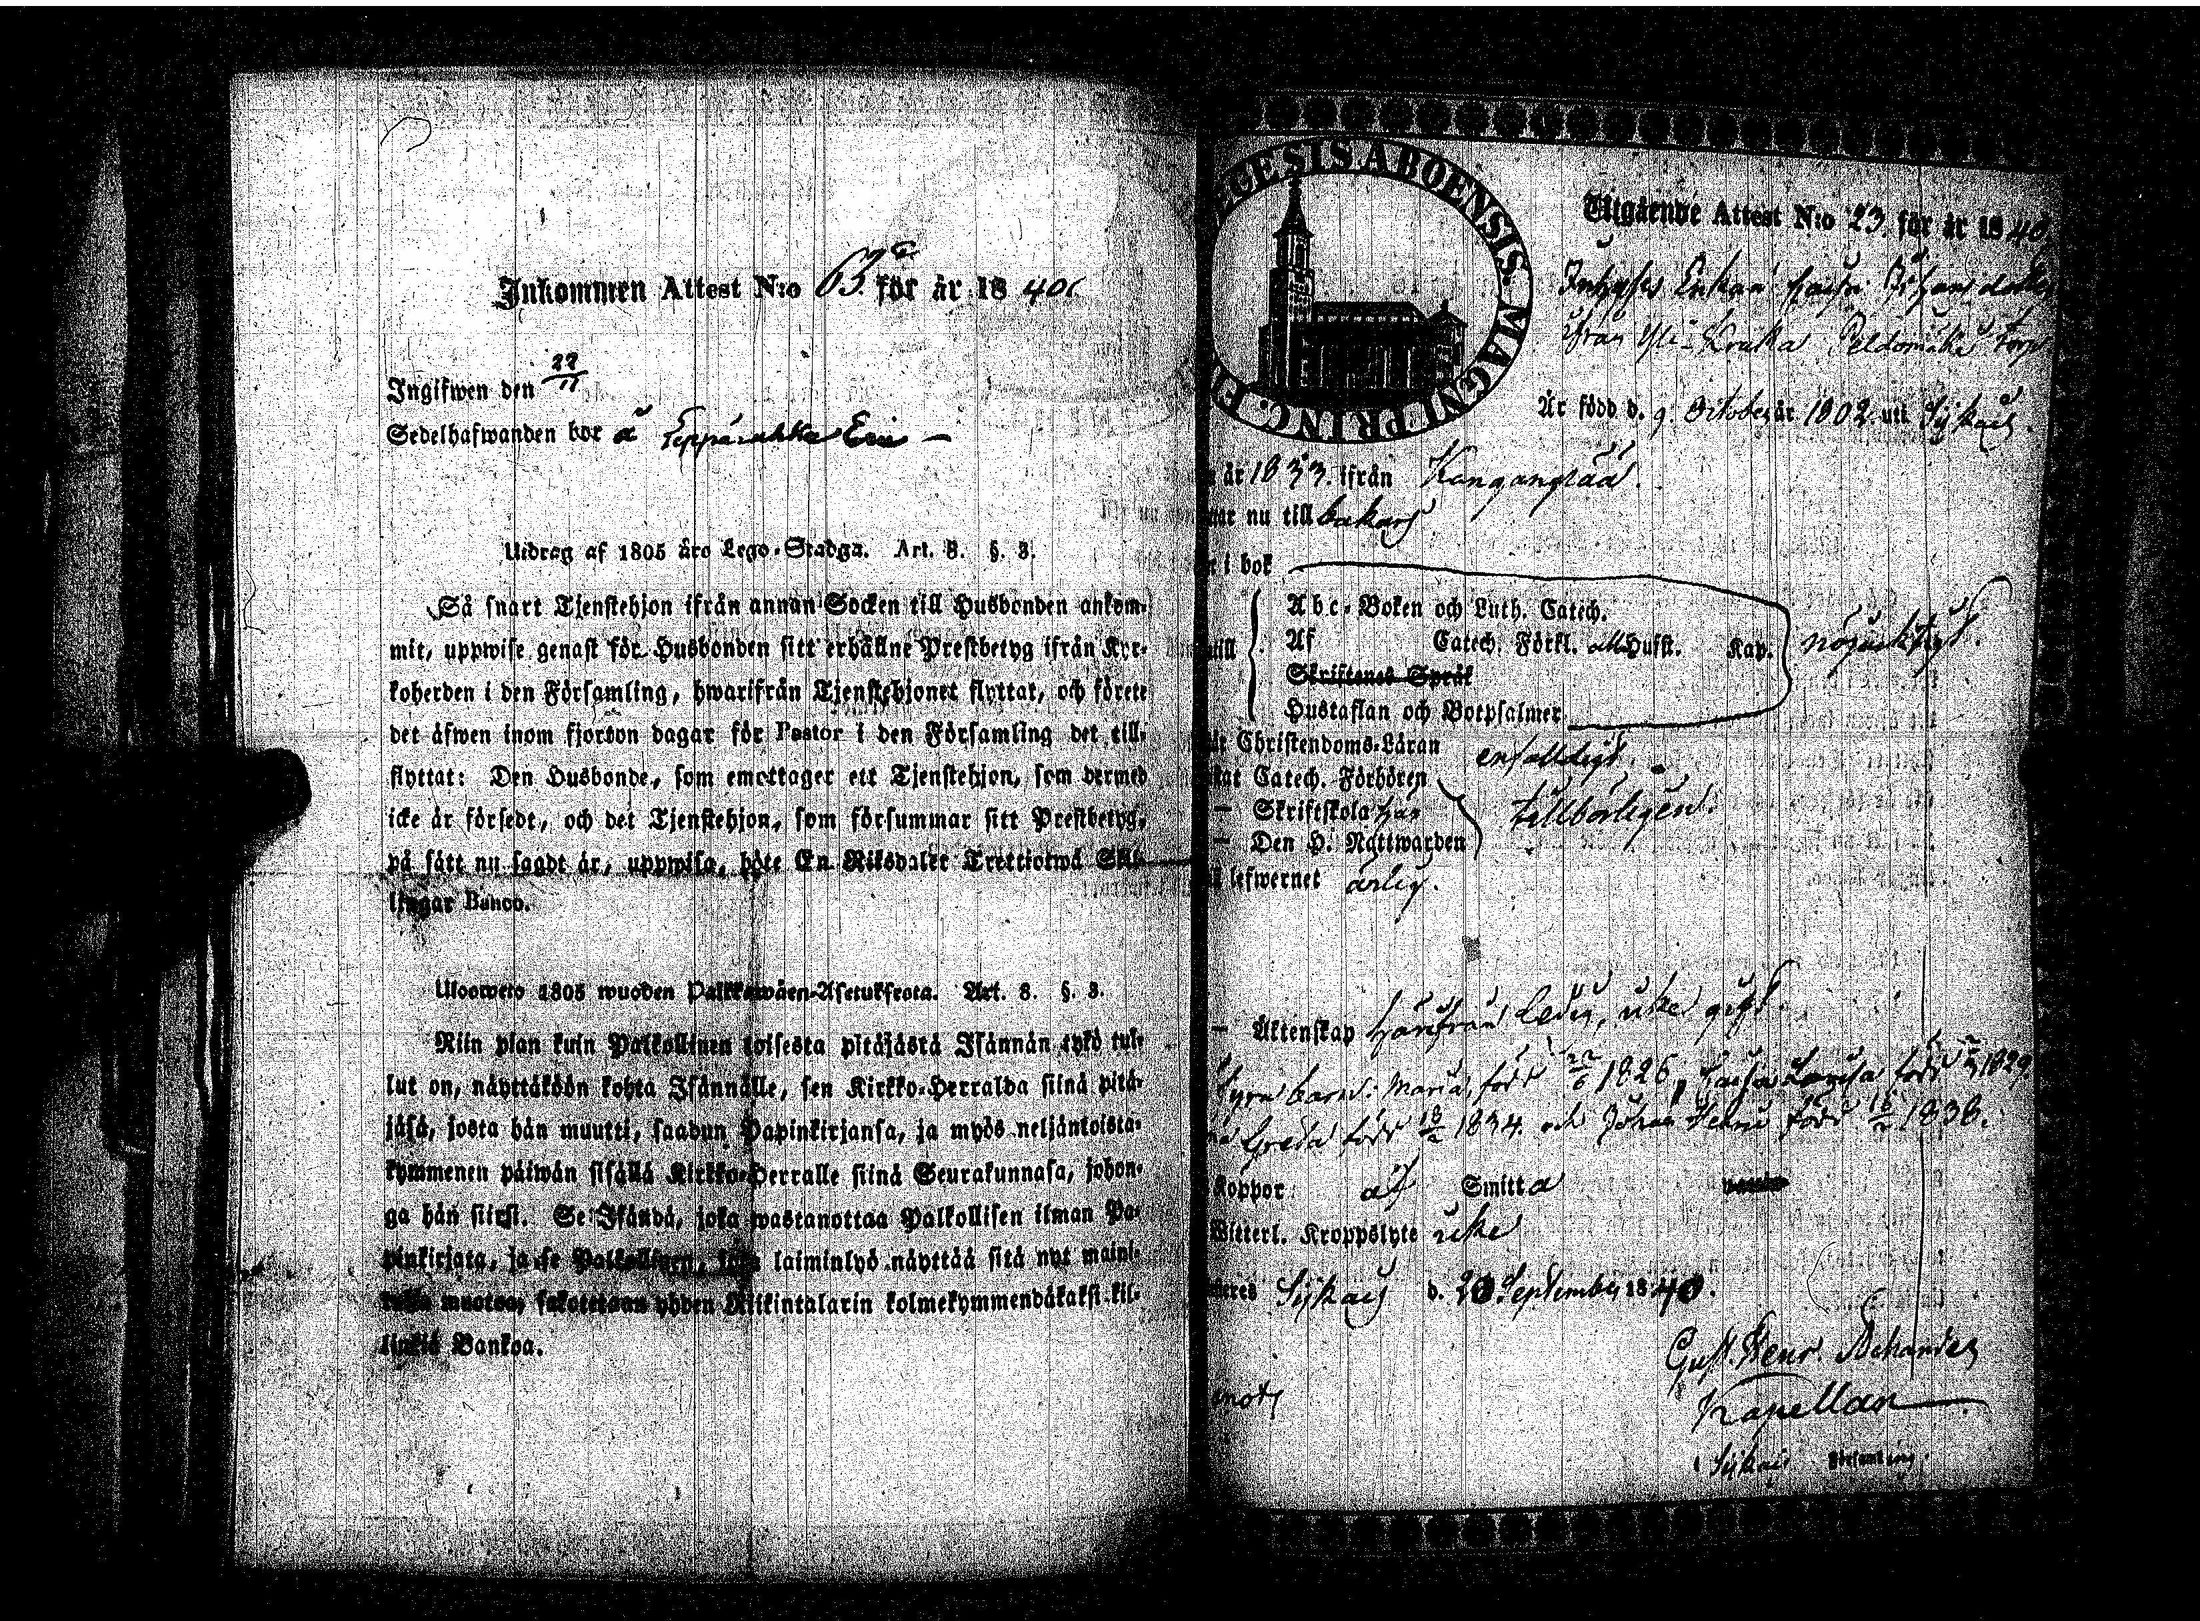 Inkommen Attest N:o 63 för år 1840.
Ingifwen den 22/11
Sedelhafwanden bor å
Utdrag af 1805 års Lego-Stadga. Art. 8. §. 3.
Så snart Tjenstehjon ifrån annan Socken till Husbonden ankom-
mit, uppwise genast för Husbonden sitt erhållne Prestbetyg ifrån Kyr-
koherden i den Församling, hwarifrån Tjenstehjonet flyttat, och förete
det äfwen inom fjorton dagar för Pastor i den Församling det till-
flyttat: Den Husbonde, som emottager ett Tjenstehjon, som dermed
icke är försedt, och det Tjenstehjon, som försummar sitt Prestbetyg,
på sätt nu sagdt är, uppwisa, böte En Riksdaler Trettiotwå Skil-
lingar Banco.
Ulosweto 1805 wuoden Palkkawäen-Asetuksesta. Art. 8. §. 3.
Niin pian kuin Palkollinen toisesta pitäjästä Isännän tykö tul-
lut on, näyttäköön kohta Isännälle, sen Kirkko-Herralda siinä pitä-
jäsä, josta hän muutti, saadun Papinkirjansa, ja myös neljäntoista-
kymmenen päiwän sisällä Kirkko-Herralle siinä Seurakunnasa, johon-
ga hän siirsi. Se Isändä, joka wastanottaa Palkollisen ilman Pa-
pinkirjata, ja se Palkollinen, kuin laiminlyö näyttää sitä nyt maini-
tulla muotoa, sakotetaan yhden Riikintalarin kolmekymmendäkaksi kil-
linkiä Bankoa.
ECESIS. ABOENSIS. MAGNI. PRINC.
Utgående Attest N:o 23. för år 1840.
Inhyses Enkan Caisa Johansdotter
från Yli-Krukka Peldomäki torp
Är född d. 9. October år 1802. uti Sykais.
år 1833. ifrån Kangan
nu till bakars
i bok
Abc-Boken och Luth. Catech.
Af Catech. Förkl. Husst. Kap. nöjaktigt.
Skriftenes Språk
Hustaflan och Botpsalmer
Christendoms-Läran enfaldigt.
Catech. Förhören
– Skriftskola
– Den H. Nattwarden tillbörligen.
lefwernet ärlig.
– Äktenskap härifrån ledig, icke gift.
fyra barn: Maria, född 22/6 1826, Caisa Lovisa född 1829.
Greta född 18/2 1834. och Johan Henric född 1838.
Koppor af Smitta
Witterl. Kroppslyte icke
Sykais d. 20 September 1840.
Gust. Henr.
Kapellan
i Sykais Församling.